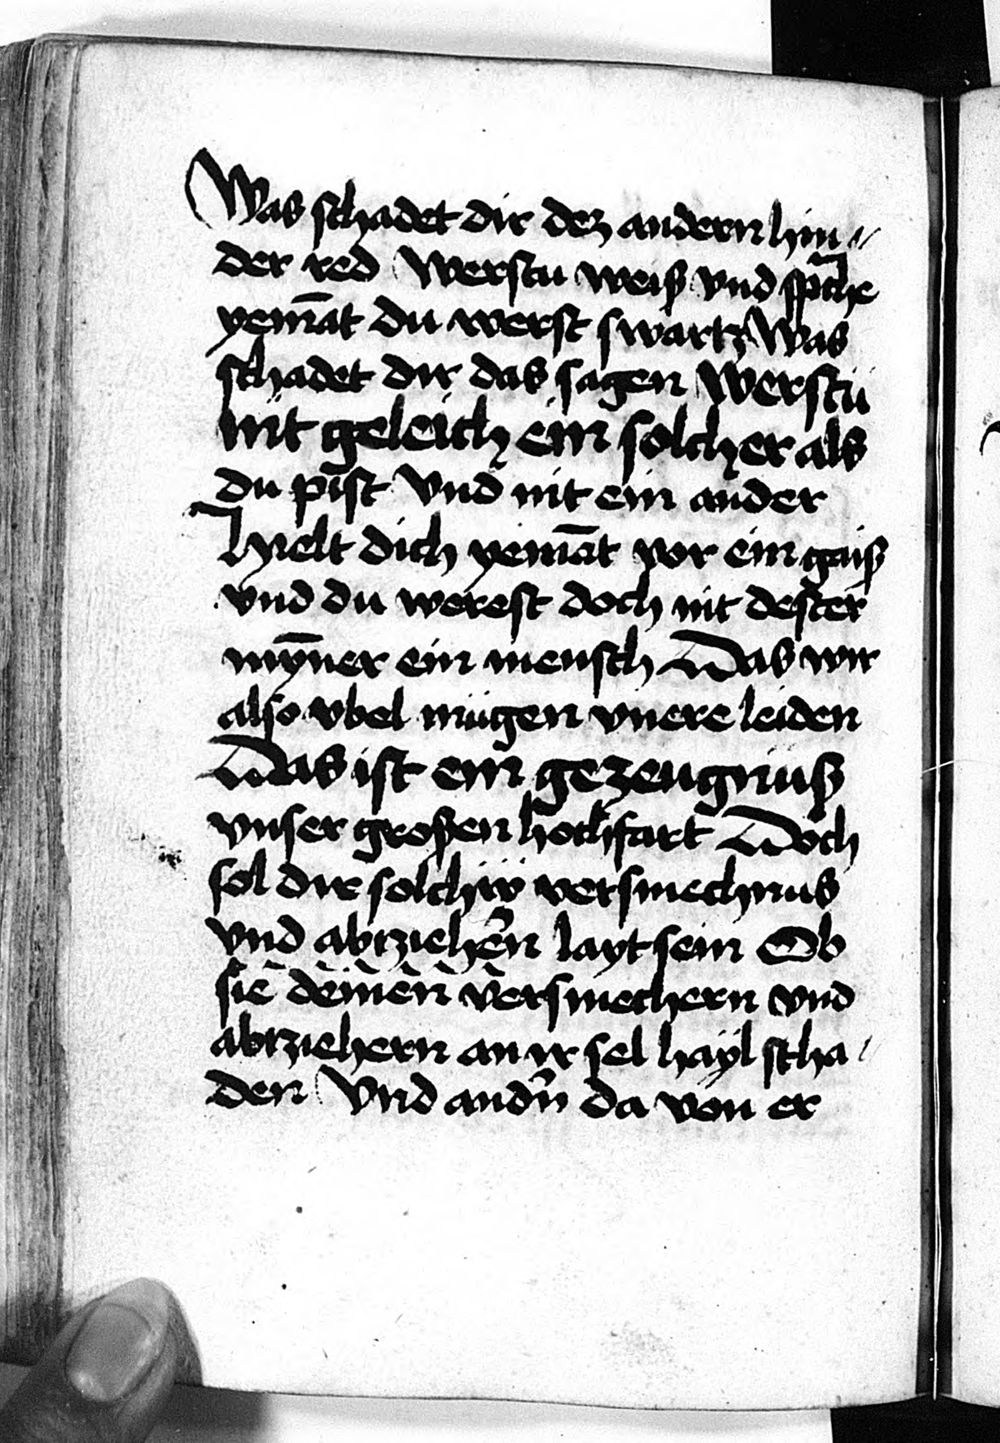 Was schadet dir dez andern hin〃
der red Werstu weiß vnd sp̃che
yemãt du werst swartz Was
schadet dir das sagen Werstu
nit geleich ein solcher als
du pist Vnd nit ein ander
Hielt dich yemãt vor ein gaiß
vnd du werest doch nit dester
mỹner ein mensch Das wir
also vbel mügen vnere leiden
Das ist ein gezeugnuß
vnser großen hochfart Doch
sol dir solchiw versmechnus
vnd abtziehẽn layt sein Ob
sie deinen versmechern vnd
abtziehern an ir sel hayl scha〃
den Vnd andñ da von er